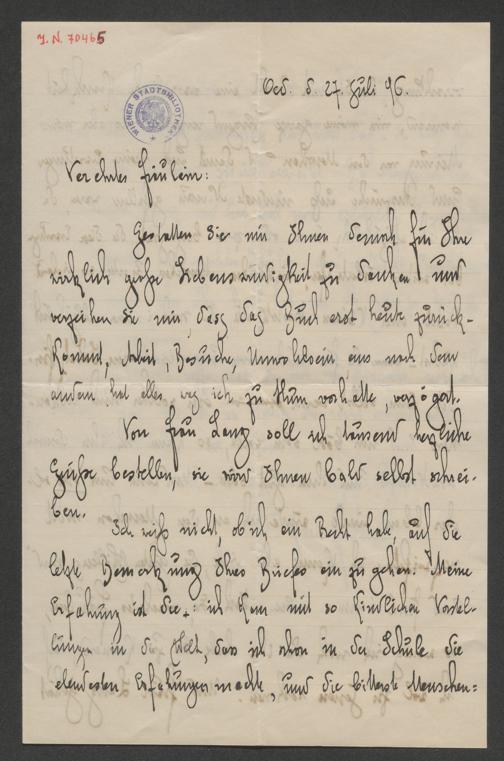 J. N. 70465
WIENER STADTBIBLIOTHEK
Oed. d. 27. Juli 96.
Verehrtes Fräulein:
Gestatten Sie mir Ihnen demnach für Ihre
wirklich große Liebenswürdigkeit zu danken und
verzeihen Sie mir, dasz das Buch erst heute zurück-
kommt, Arbeit, Besuche, Unwohlsein eins nach dem
andern hat alles, was ich zu thun vorhatte, verzögert.
Von Frau Lang soll ich tausend herzliche
Grüße bestellen, sie wird Ihnen bald selbst schrei-
ben.
Ich weiß nicht, ob ich ein Recht habe, auf die
letzte Bemerkung Ihres Briefes ein zu gehen. Meine
Erfahrung ist die: ich kam mit so kindlichen Vorstel-
lungen in die Welt, dass ich schon in der Schule die
elendesten Erfahrungen machte, und die bitterste Menschen=